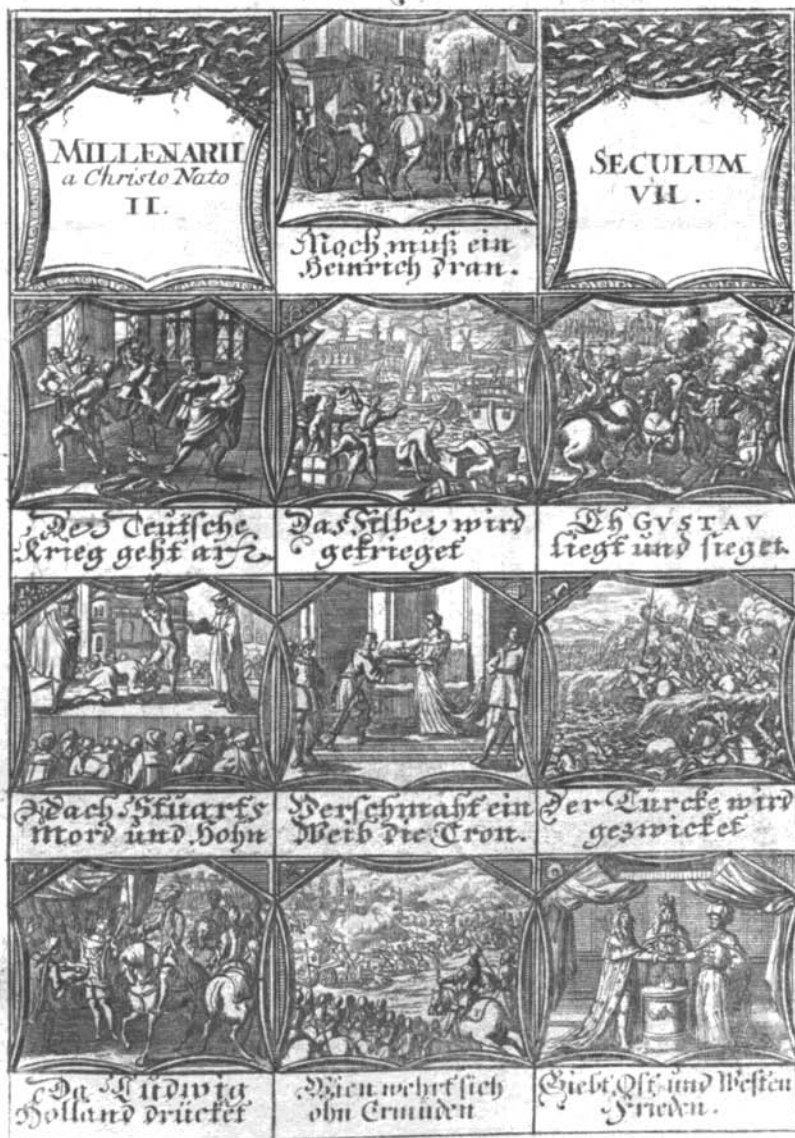 MILLENARII
a Christo Nato
II.
Noch muß ein
Heinrich dran.
SECULUM
VII.
Der Teutsche
Krieg geht an
Das Silber wird
gekrieget
GVSTAV
liegt und sieget
Nach Stuarts
Mord und Hohn
Verschmäht ein
Weib die Cron.
Der Türcke wird
gezwicket
Da Ludwig
Holland drücket
Wien wehrt sich
ohn Ermüden
Giebt Ost und Westen
Frieden.